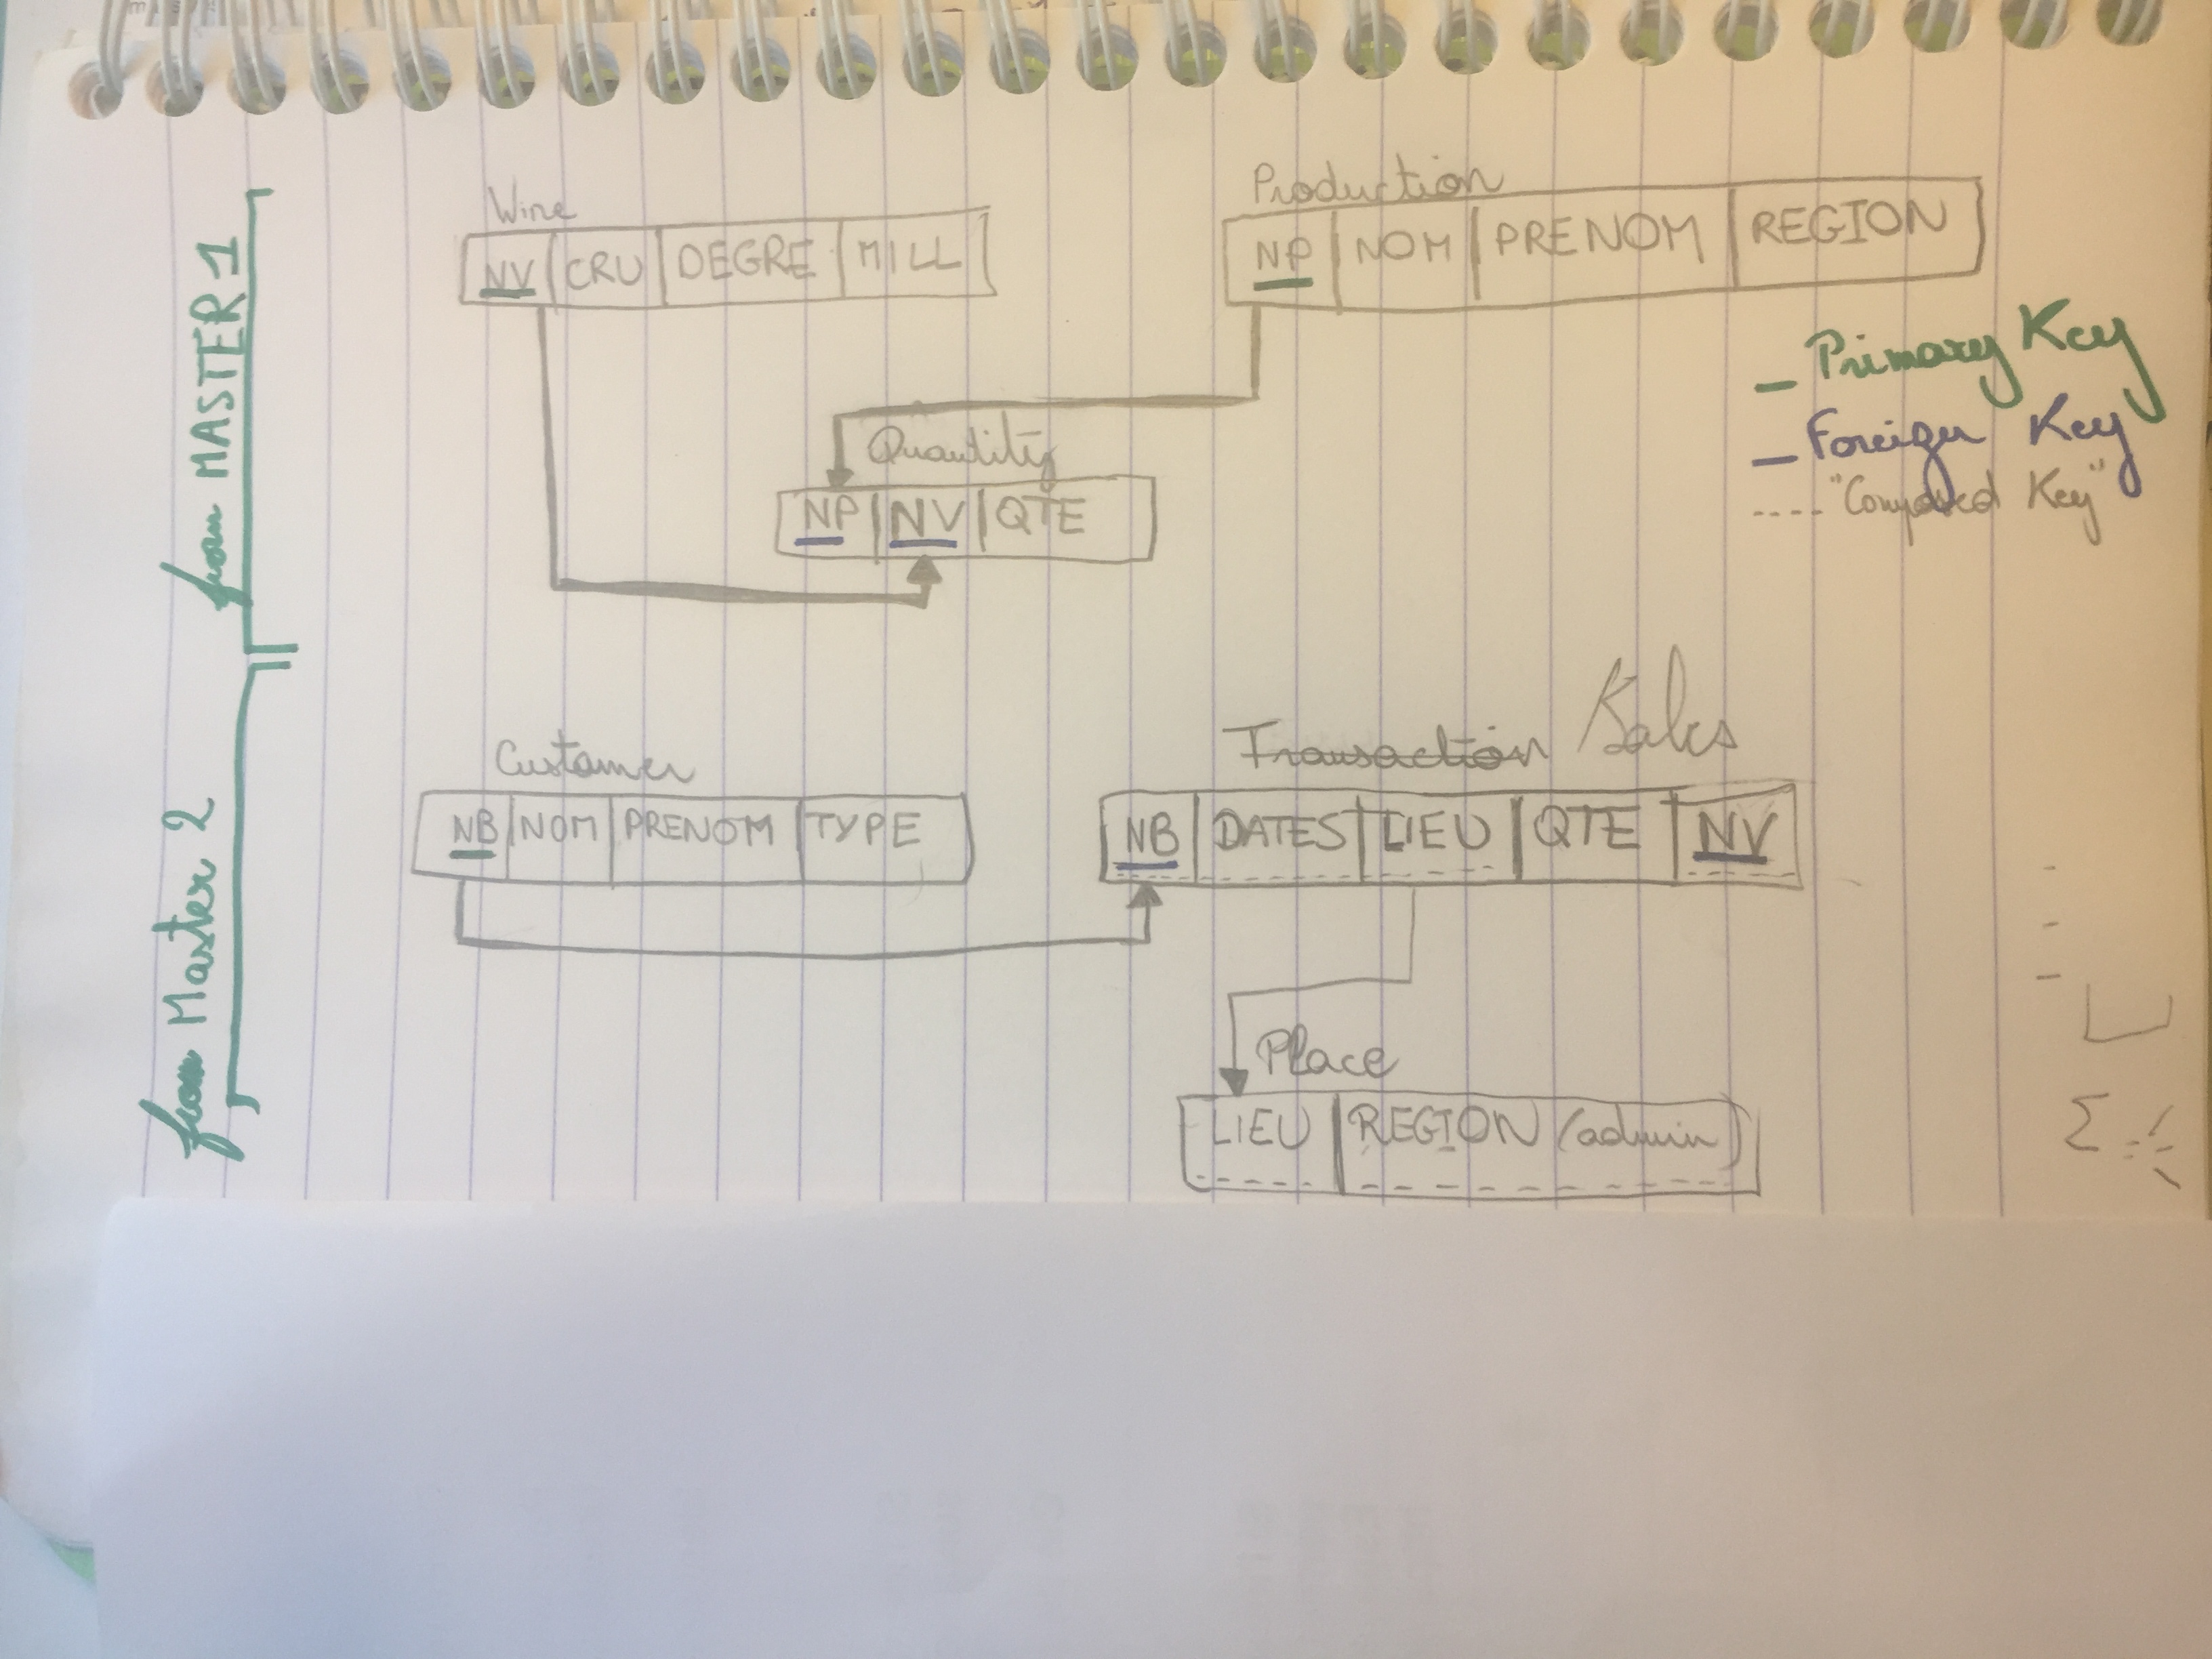 from MASTER 1
Wine
NV CRU DEGRE MILL
Production
NP NOM PRENOM REGION
Primary Key
Foreign Key
"Composed Key"
Quantity
NP NV QTE
from Master 2
Customer
NB NOM PRENOM TYPE
Transaction Sales
NB DATES LIEU QTE NV
Place
LIEU REGION (admin)